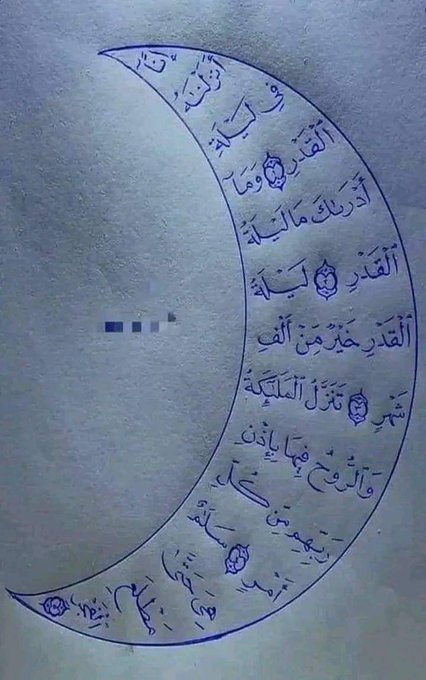 إِنَّآ
أَنزَلْنَٰهُ
فِى لَيْلَةِ
ٱلْقَدْرِ ١ وَمَآ
أَدْرَىٰكَ مَا لَيْلَةُ
ٱلْقَدْرِ ٢ لَيْلَةُ
ٱلْقَدْرِ خَيْرٌ مِّنْ أَلْفِ
شَهْرٍ ٣ تَنَزَّلُ ٱلْمَلَٰٓئِكَةُ
وَٱلرُّوحُ فِيهَا بِإِذْنِ
رَبِّهِم مِّن كُلِّ
أَمْرٍ ٤ سَلَٰمٌ
هِىَ حَتَّىٰ
مَطْلَعِ
ٱلْفَجْرِ ٥